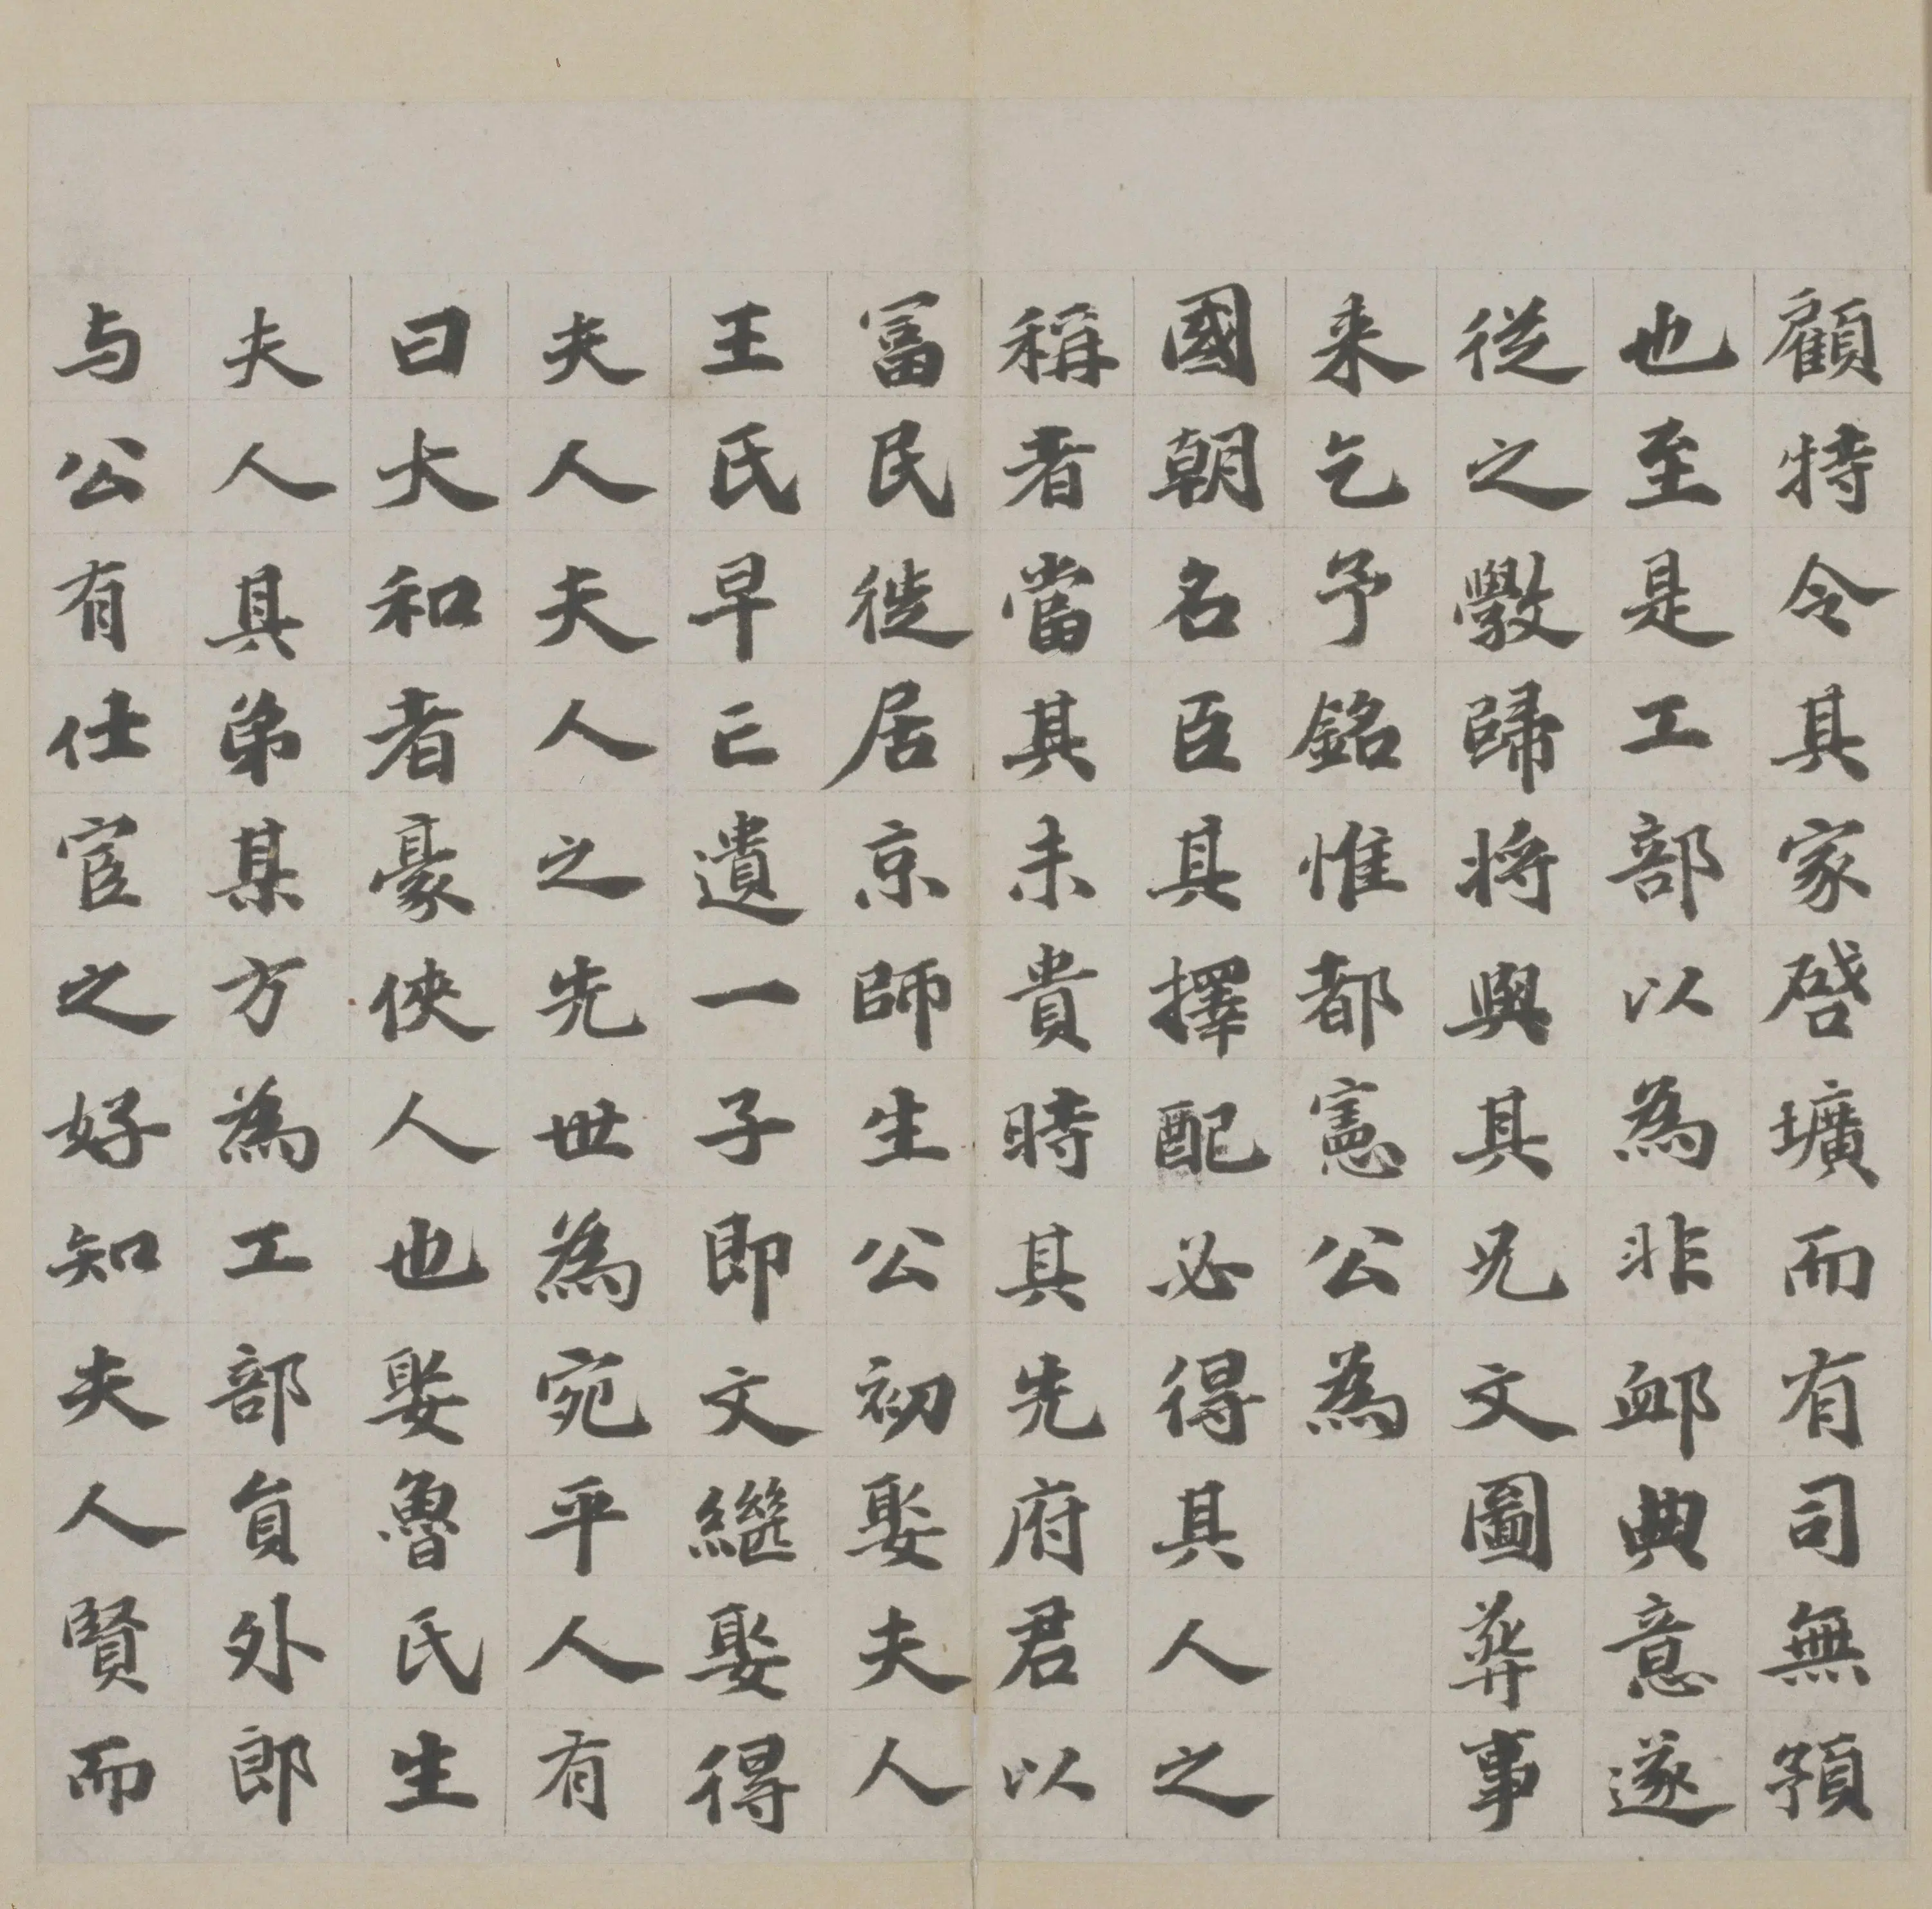 顧特令其家啓壙而有司無預
也至是工部以為非卹典意遂
從之斆歸将與其兄文圖葬事
来乞予銘惟都憲公為
國朝名臣其擇配必得其人之
稱者當其未貴時其先府君以
冨民徙居京師生公初娶夫人
王氏早亡遺一子即文繼娶得
夫人夫人之先世為宛平人有
曰大和者豪俠人也娶魯氏生
夫人其弟某方為工部員外郎
与公有仕宦之好知夫人賢而